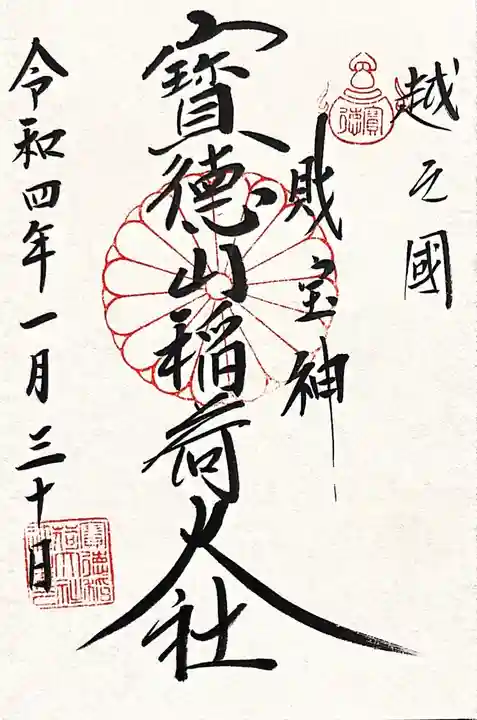 越之國
寶徳
財宝神
寶徳山稲荷大社
令和四年一月三十日
寶徳山稲荷大社